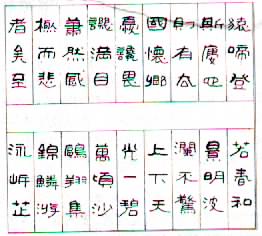 猿啼登
斯樓也
則有去
國懷鄉
憂讒畏
譏滿目
蕭然感
極而悲
者矣至
若春和
景明波
瀾不驚
上下天
光一碧
萬頃沙
鷗翔集
錦鱗游
泳岸芷